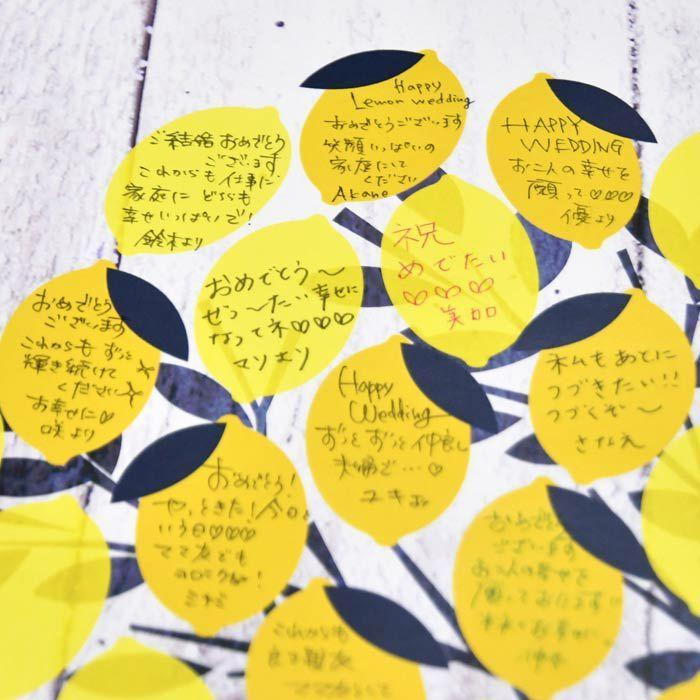 ご結婚おめでとう
ございます
これからも仕事に
家庭に どちらも
幸せいっぱいで!
鈴木より
Happy
Lemon wedding
おめでとうございます
笑顔いっぱいの
家庭にして
ください
Akane
HAPPY
WEDDING
お二人の幸せを
願って♡♡♡
優より
おめでとう〜
ぜっ〜たい幸せに
なってネ♡♡♡
マリエり
祝
めでたい
♡♡♡
美加
おめでとう
ございます
これからもずっと
輝き続けて
ください
お幸せに♡
咲より
Happy
Wedding
ずっとずっと仲良し
夫婦で…♡
ユキより
私もあとに
つづきたい!!
つづくぞ〜
さなえ
おめでとう!
やっときた!今日と
いう日♡♡♡
ミナミ
おめでとう
ございます
お二人の幸せを
願っております!!
これからも